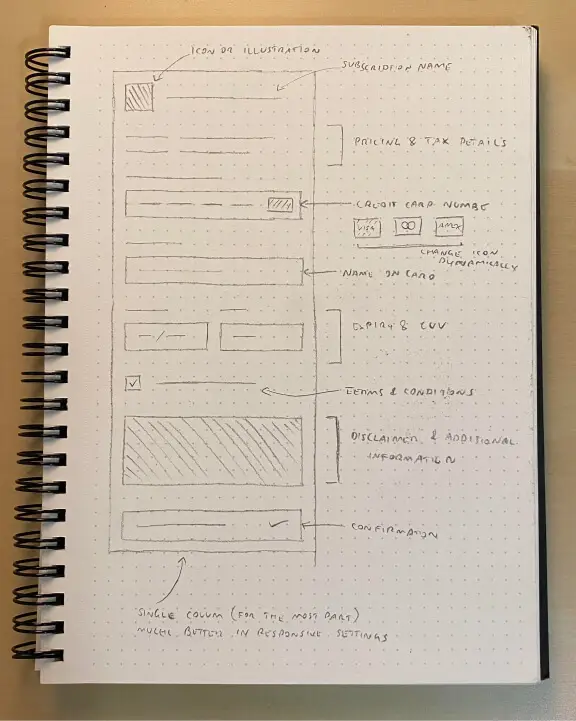 ICON OR ILLUSTRATION
SUBSCRIPTION NAME
PRICING & TAX DETAILS
CREDIT CARD NUMBE
VISA
AMEX
CHANGE ICON
DYNAMICALLY
NAME ON CARD
EXPIRY & CVV
TERMS & CONDITIONS
DISCLAIMER & ADDITIONAL
INFORMATION
CONFIRMATION
SINGLE COLUM (FOR THE MOST PART)
MUCH BETTER IN RESPONSIVE SETTINGS